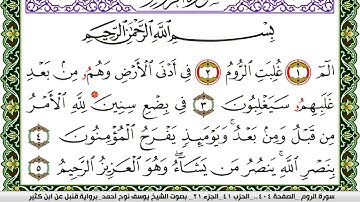 بِسْمِ ٱللَّهِ ٱلرَّحْمَٰنِ ٱلرَّحِيمِ
الٓمٓ ١ غُلِبَتِ ٱلرُّومُ ٢ فِىٓ أَدْنَى ٱلْأَرْضِ وَهُمُۥ مِنۢ بَعْدِ
غَلَبِهِمُۥ سَيَغْلِبُونَ ٣ فِى بِضْعِ سِنِينَ لِلَّهِ ٱلْأَمْرُ
مِن قَبْلُ وَمِنۢ بَعْدُ وَيَوْمَئِذٍ يَفْرَحُ ٱلْمُؤْمِنُونَ ٤
بِنَصْرِ ٱللَّهِ يَنصُرُ مَن يَشَآءُ وَهُوَ ٱلْعَزِيزُ ٱلرَّحِيمُ ٥
سورة الروم _ الصفحة ٤٠٤ _ الحزب ٤١ _ الجزء ٢١ _ بصوت الشيخ يوسف نوح أحمد _ برواية قنبل عن ابن كثير